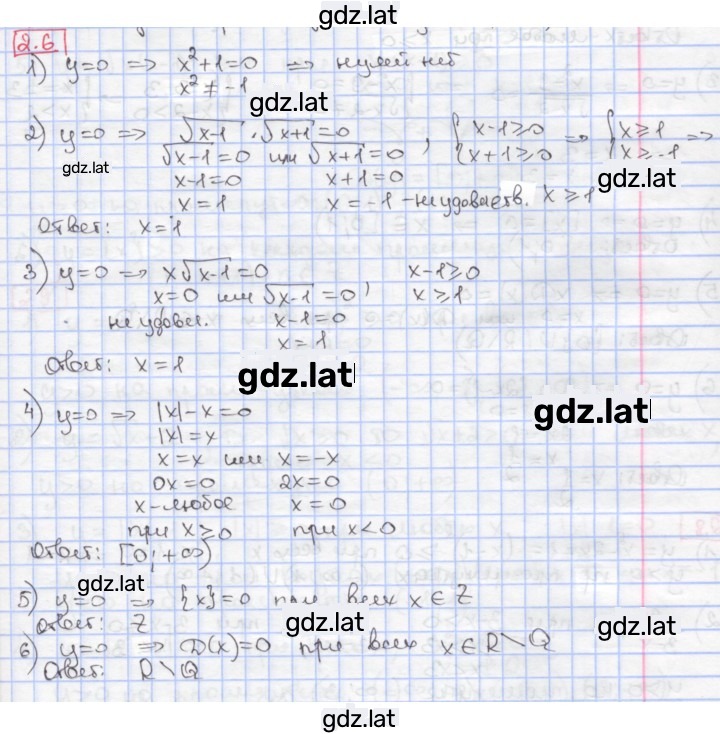 gdz.lat
2.6
1) y=0 => x²+1=0 => нулей нет
x² ≠ -1
gdz.lat
2) y=0 => √x-1 · √x+1 = 0 , { x-1≥0 => { x≥1 =>
√x-1 = 0 или √x+1 = 0 x+1≥0 x≥-1
gdz.lat
gdz.lat
x-1=0 x+1=0
x=1 x=-1 - не удовлетв. x≥1
Ответ: x=1
3) y=0 => x√x-1 = 0 x-1≥0
x=0 или √x-1 = 0, x≥1
не удовл. x-1=0
x=1
Ответ: x=1
gdz.lat
gdz.lat
4) y=0 => |x|-x=0
|x|=x
x=x или x=-x
0x=0 2x=0
x-любое x=0
при x≥0 при x<0
Ответ: [0;+∞)
gdz.lat
5) y=0 => {x}=0 при всех x∈Z
Ответ: Z
gdz.lat
gdz.lat
6) y=0 => D(x)=0 при всех x∈R\Q
Ответ: R\Q
gdz.lat